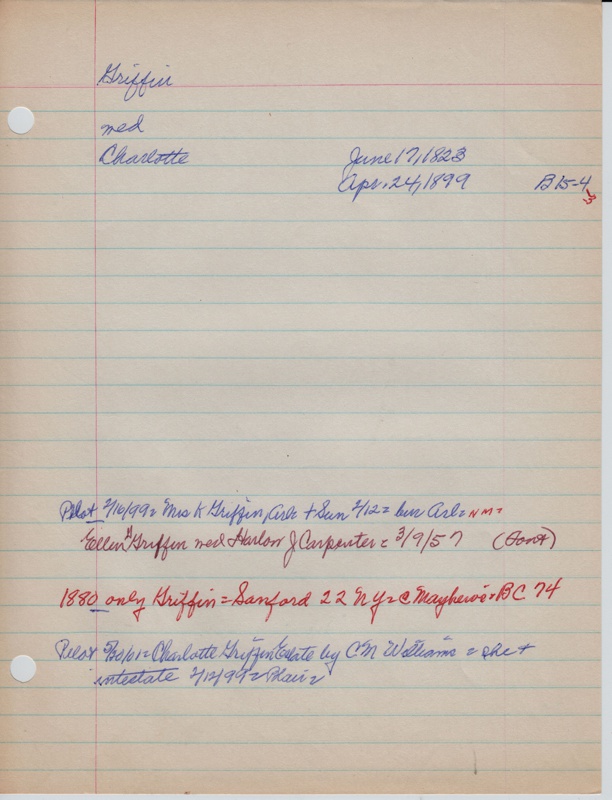 Griffin
med
Charlotte June 17, 1823
Apr. 24, 1899 B 15-4
3
Pilot 2/16/99 = Mrs K Griffin, Arl = + Sun 2/12 = bur Arl = NM =
Ellen H Griffin med Harlon J Carpenter = 3/9/57 (Pont)
1880 only Griffin = Sanford 22 NY = @ Mayhew's + BC 74
Pilot 5/30/01 = Charlotte Griffin Estate by C.M. Williams = she +
intestate 2/12/99 =